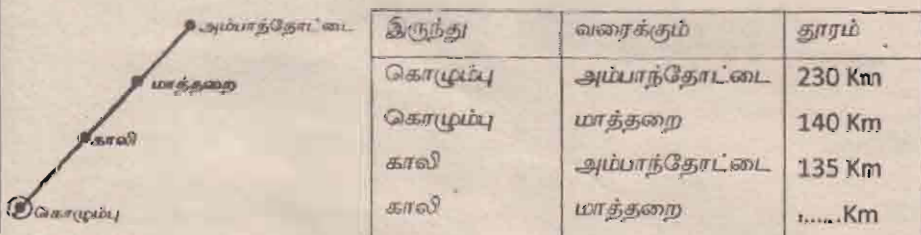 அம்பாந்தோட்டை
மாத்தறை
காலி
கொழும்பு
இருந்து வரைக்கும் தூரம்
கொழும்பு அம்பாந்தோட்டை 230 Km
கொழும்பு மாத்தறை 140 Km
காலி அம்பாந்தோட்டை 135 Km
காலி மாத்தறை ......Km